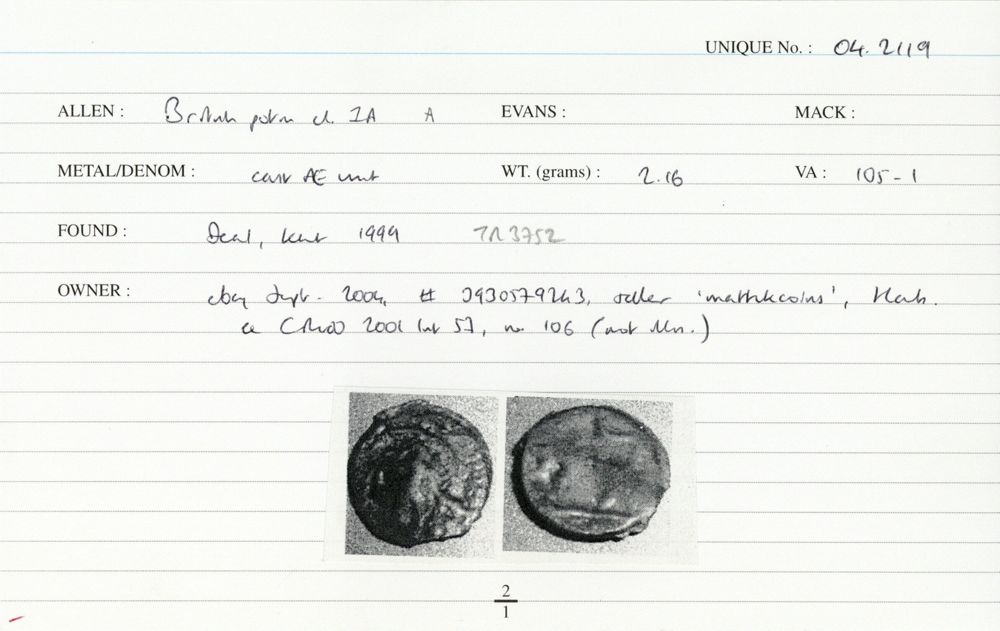 UNIQUE No. : 04.2119
ALLEN : British potin cl. IA A EVANS : MACK :
METAL/DENOM : cast AE unit WT. (grams) : 2.16 VA : 105-1
FOUND : Deal, Kent 1999 TR 3752
OWNER : ebay Sept. 2004, # 3930579243, seller 'matthkcoins',
CR 2001 57, no 106 (not illn.)
2
1